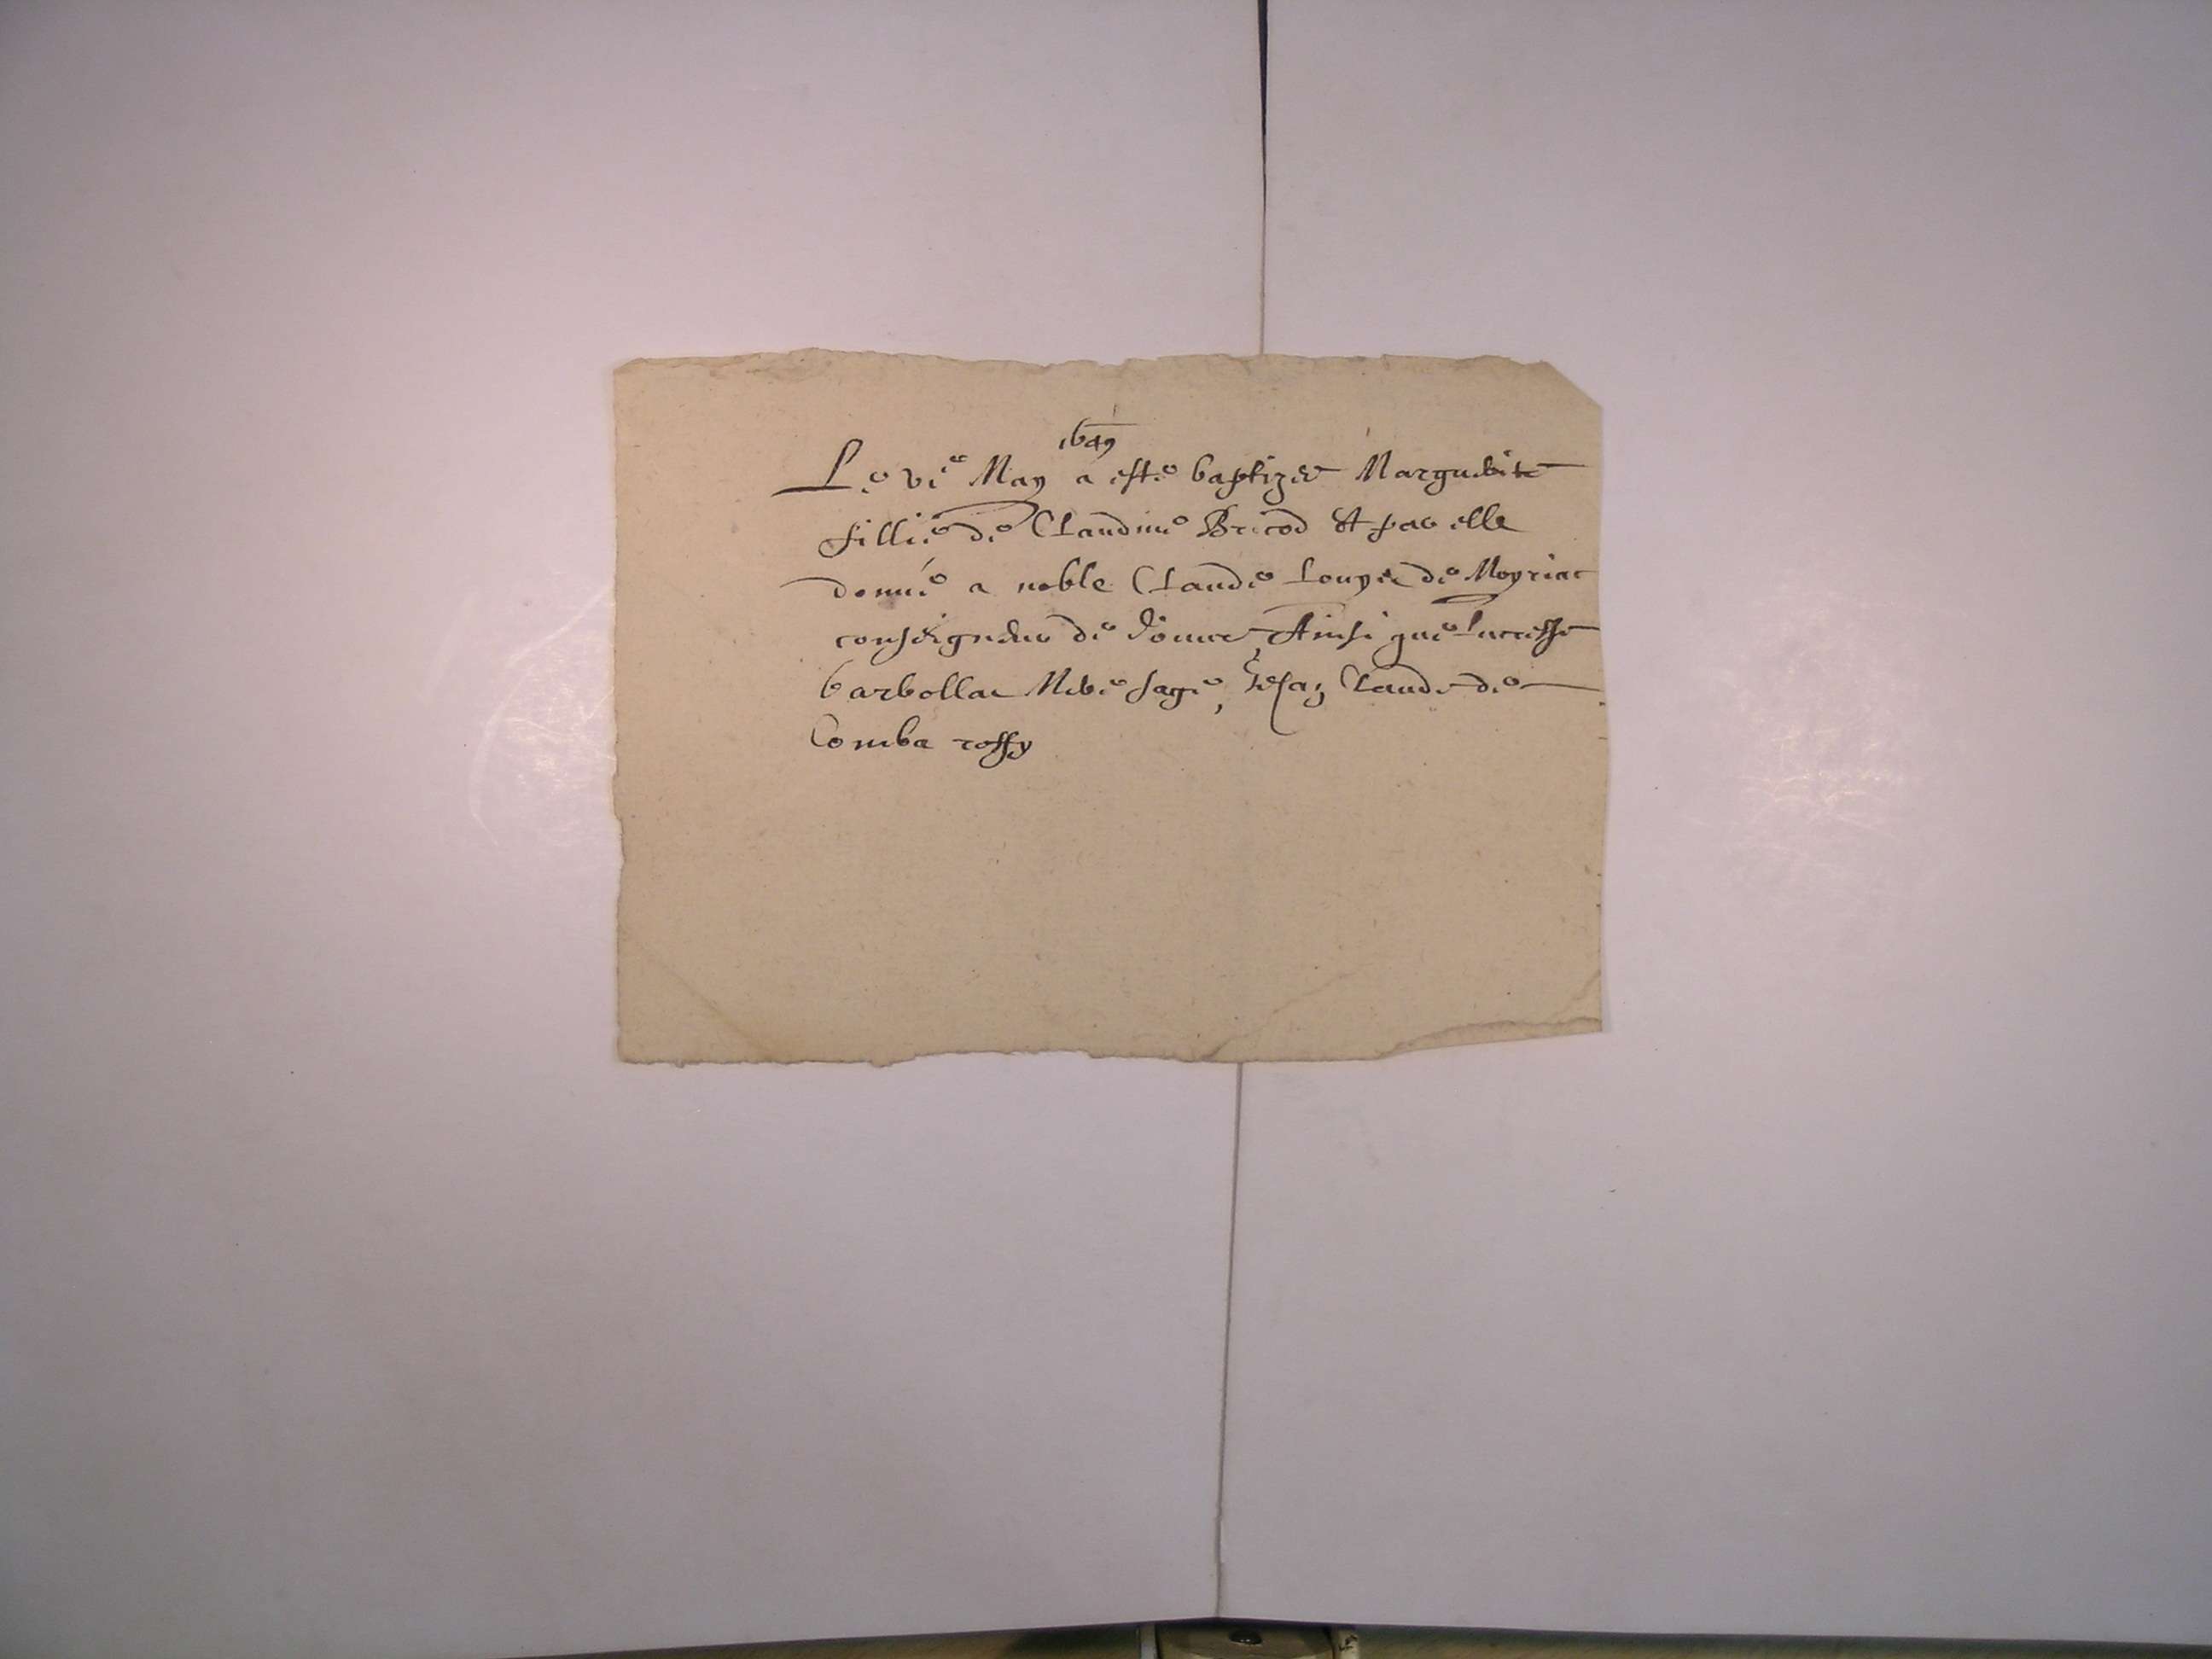 1649
Le vie May a esté baptizée Marguerite
fillie de Claudine Bricod et par elle
donné a noble Claude Louys de Moyriac
conseigneur de Ainsi que l'atteste
barbollat Mere sage, Claude de
Comba roffy